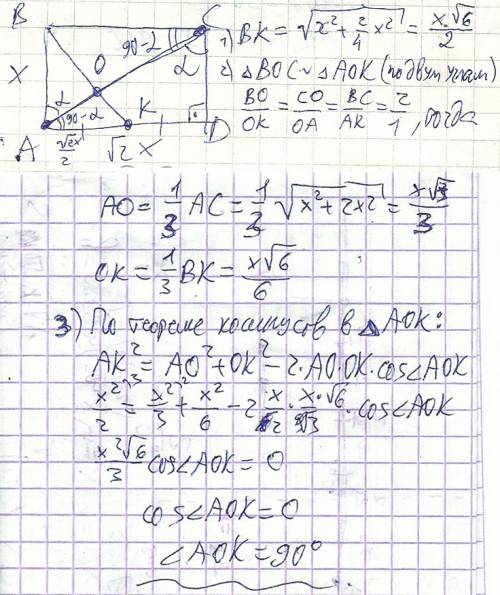 B
C
X
O
90-α
α
α
90-α
K
A
√2x/2
√2 X
D
1) BK = √(x² + 2/4 x²) = x·√6/2
2) △BOC ~ △AOK (по двум углам)
BO/OK = CO/OA = BC/AK = 2/1, тогда
AO = 1/3 AC = 1/3 √(x² + 2x²) = x√3/3
OK = 1/3 BK = x√6/6
3) По теореме косинусов в △AOK:
AK² = AO² + OK² - 2·AO·OK·cos∠AOK
x²/2 = x²/3 + x²/6 - 2 x · x·√6 · cos∠AOK
x²√6/3 cos∠AOK = 0
cos∠AOK = 0
∠AOK = 90°